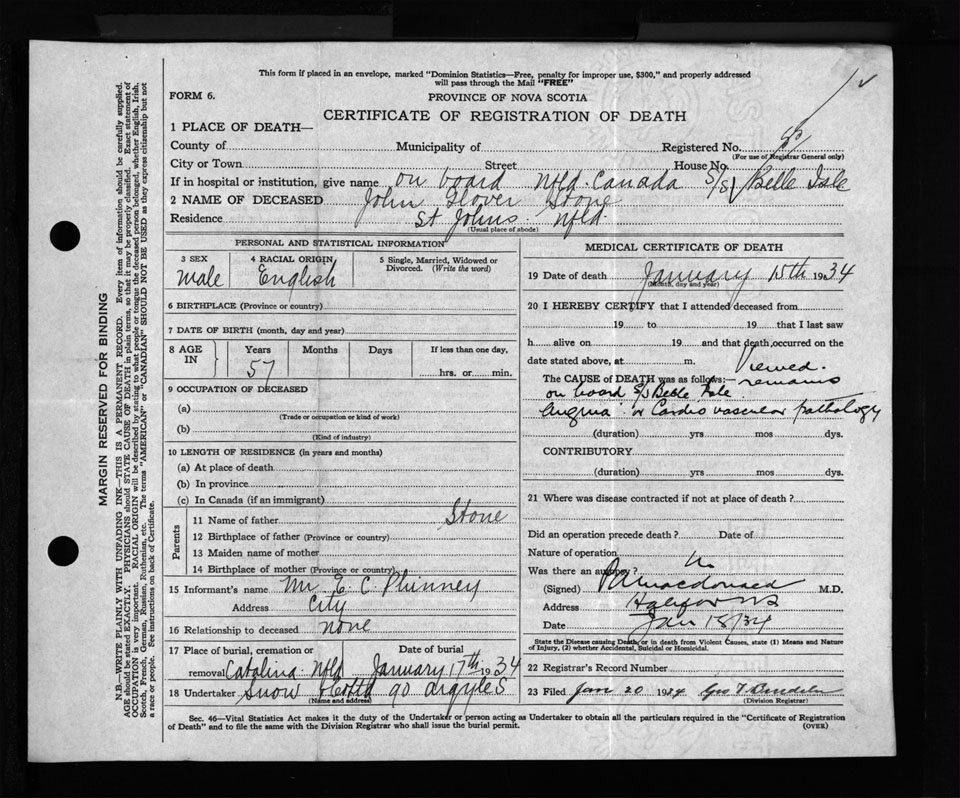 This form if placed in an envelope, marked "Dominion Statistics—Free, penalty for improper use, $300," and properly addressed
will pass through the Mail "FREE"
FORM 6.
PROVINCE OF NOVA SCOTIA
CERTIFICATE OF REGISTRATION OF DEATH
1 PLACE OF DEATH—
County of Municipality of Registered No.
(For use of Registrar General only)
City or Town Street House No.
If in hospital or institution, give name on board Nfld. Canada S/S Belle Isle
2 NAME OF DECEASED John Glover Stone
Residence St Johns Nfld.
(Usual place of abode)
PERSONAL AND STATISTICAL INFORMATION
3 SEX 4 RACIAL ORIGIN 5 Single, Married, Widowed or
Divorced. (Write the word)
male English
6 BIRTHPLACE (Province or country)
7 DATE OF BIRTH (month, day and year)
8 AGE IN Years Months Days If less than one day,
57 hrs. or min.
9 OCCUPATION OF DECEASED
(a)
(Trade or occupation or kind of work)
(b)
(Kind of industry)
10 LENGTH OF RESIDENCE (in years and months)
(a) At place of death
(b) In province
(c) In Canada (if an immigrant)
Parents
11 Name of father Stone
12 Birthplace of father (Province or country)
13 Maiden name of mother
14 Birthplace of mother (Province or country)
15 Informant's name Mr E. C. Phinney
Address City
16 Relationship to deceased none
17 Place of burial, cremation or Date of burial
removal Catalina Nfld January 17th 1934
18 Undertaker Snow 90 Argyle S
(Name and address)
MEDICAL CERTIFICATE OF DEATH
19 Date of death January 15th 1934
(Month, day and year)
20 I HEREBY CERTIFY that I attended deceased from
19 to 19 that I last saw
h alive on 19 and that death, occurred on the
date stated above, at m. Viewed.
The CAUSE of DEATH was as follows:— remains
on board S/S Belle Isle
Angina or Cardio vascular pathology
(duration) yrs mos dys.
CONTRIBUTORY
(duration) yrs mos dys.
21 Where was disease contracted if not at place of death ?
Did an operation precede death ? Date of
Nature of operation
Was there an autopsy ? No
(Signed) Macdonald M.D.
Address Halifax NS
Date Jan 18/34
State the Disease causing Death, or in death from Violent Causes, state (1) Means and Nature
of Injury, (2) whether Accidental, Suicidal or Homicidal.
22 Registrar's Record Number
23 Filed Jan 20 1934 Geo
(Division Registrar)
Sec. 46—Vital Statistics Act makes it the duty of the Undertaker or person acting as Undertaker to obtain all the particulars required in the "Certificate of Registration
of Death" and to file the same with the Division Registrar who shall issue the burial permit. (OVER)
MARGIN RESERVED FOR BINDING
N.B.—WRITE PLAINLY WITH UNFADING INK—THIS IS A PERMANENT RECORD. Every item of information should be carefully supplied.
AGE should be stated EXACTLY. PHYSICIANS should STATE CAUSE OF DEATH in plain terms, so that it may be properly classified. Exact statement of
OCCUPATION is very important. RACIAL ORIGIN will be described by stating to what people or tongue the deceased person belonged, whether English, Irish,
Scotch, French, German, Russian, Ruthenian, etc. The terms "AMERICAN" or "CANADIAN" SHOULD NOT BE USED as they express citizenship but not
a race or people. See instructions on back of Certificate.